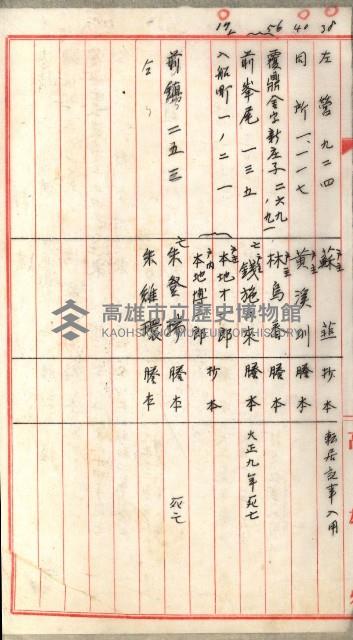 38
左營 九二四 戶主 蘇韮 抄本 転居記事入用
40
同所 一、一一七 戶主 黃溪圳 謄本
56
覆鼎金字新庄子 二六九ノ九一 戶主 林烏香 謄本
前峯尾 一三五 亡戶主 錢施來 謄本 大正九年死亡
19
入船町 一ノ二一 戶主 本地才一郎
戶內 本地博一郎 抄本
前鎮 二五三 亡 朱登 謄本 死亡
仝 朱維 謄本
高雄市立歷史博物館
KAOHSIUNG MUSEUM OF HISTORY
高雄